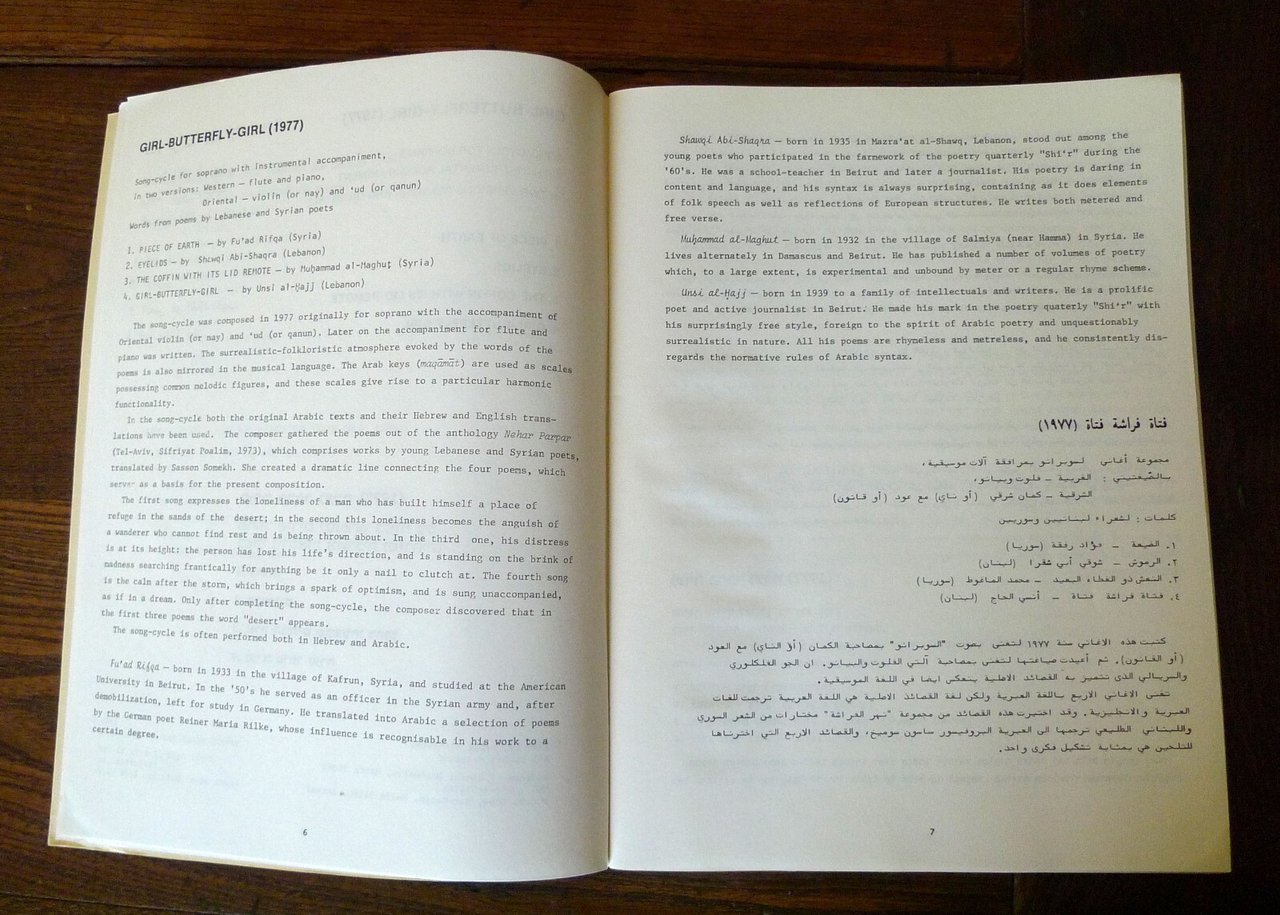 GIRL-BUTTERFLY-GIRL (1977)
Song-cycle for soprano with instrumental accompaniment,
in two versions: Western — flute and piano,
Oriental — violin (or nay) and 'ud (or qanun)
Words from poems by Lebanese and Syrian poets
1. PIECE OF EARTH — by Fu'ad Rifqa (Syria)
2. EYELIDS — by Shcwqi Abi-Shaqra (Lebanon)
3. THE COFFIN WITH ITS LID REMOTE — by Muḥammad al-Maghuṭ (Syria)
4. GIRL-BUTTERFLY-GIRL — by Unsi al-Ḥajj (Lebanon)
The song-cycle was composed in 1977 originally for soprano with the accompaniment of
Oriental violin (or nay) and 'ud (or qanun). Later on the accompaniment for flute and
piano was written. The surrealistic-folkloristic atmosphere evoked by the words of the
poems is also mirrored in the musical language. The Arab keys (maqāmāt) are used as scales
possessing common melodic figures, and these scales give rise to a particular harmonic
functionality.
In the song-cycle both the original Arabic texts and their Hebrew and English trans-
lations have been used. The composer gathered the poems out of the anthology Nehar Parpar
(Tel-Aviv, Sifriyat Poalim, 1973), which comprises works by young Lebanese and Syrian poets,
translated by Sasson Somekh. She created a dramatic line connecting the four poems, which
serve as a basis for the present composition.
The first song expresses the loneliness of a man who has built himself a place of
refuge in the sands of the desert; in the second this loneliness becomes the anguish of
a wanderer who cannot find rest and is being thrown about. In the third one, his distress
is at its height: the person has lost his life's direction, and is standing on the brink of
madness searching frantically for anything be it only a nail to clutch at. The fourth song
is the calm after the storm, which brings a spark of optimism, and is sung unaccompanied,
as if in a dream. Only after completing the song-cycle, the composer discovered that in
the first three poems the word "desert" appears.
The song-cycle is often performed both in Hebrew and Arabic.
Fu'ad Rifqa — born in 1933 in the village of Kafrun, Syria, and studied at the American
University in Beirut. In the '50's he served as an officer in the Syrian army and, after
demobilization, left for study in Germany. He translated into Arabic a selection of poems
by the German poet Reiner Maria Rilke, whose influence is recognisable in his work to a
certain degree.
6
Shawqi Abi-Shaqra — born in 1935 in Mazra'at al-Shawq, Lebanon, stood out among the
young poets who participated in the farmework of the poetry quarterly "Shi'r" during the
'60's. He was a school-teacher in Beirut and later a journalist. His poetry is daring in
content and language, and his syntax is always surprising, containing as it does elements
of folk speech as well as reflections of European structures. He writes both metered and
free verse.
Muḥammad al-Maghut — born in 1932 in the village of Salmiya (near Hamma) in Syria. He
lives alternately in Damascus and Beirut. He has published a number of volumes of poetry
which, to a large extent, is experimental and unbound by meter or a regular rhyme scheme.
Unsi al-Ḥajj — born in 1939 to a family of intellectuals and writers. He is a prolific
poet and active journalist in Beirut. He made his mark in the poetry quaterly "Shi'r" with
his surprisingly free style, foreign to the spirit of Arabic poetry and unquestionably
surrealistic in nature. All his poems are rhymeless and metreless, and he consistently dis-
regards the normative rules of Arabic syntax.
فتاة فراشة فتاة (١٩٧٧)
مجموعة أغاني لسوبرانو بمرافقة آلات موسيقية،
بالصّيغتين : الغربية – فلوت وبيانو،
الشرقية – كمان شرقي (أو ناي) مع عود (أو قانون)
كلمات : لشعراء لبنانيين وسوريين
١. الضيعة – فؤاد رفقة (سوريا)
٢. الرموش – شوقي أبي شقرا (لبنان)
٣. النعش ذو الغطاء البعيد – محمد الماغوط (سوريا)
٤. فتاة فراشة فتاة – أنسي الحاج (لبنان)
كتبت هذه الاغاني سنة ١٩٧٧ لتغنى بصوت "السوبرانو" بمصاحبة الكمان (أو الناي) مع العود
(أو القانون). ثم أعيدت صياغتها لتغنى بمصاحبة آلتي الفلوت والبيانو. ان الجو الفلكلوري
والسريالي الذي تتميز به القصائد الاصلية ينعكس ايضا في اللغة الموسيقية.
تغنى الاغاني الاربع باللغة العبرية ولكن لغة القصائد الاصلية هي اللغة العربية ترجمت للغات
العبرية والانجليزية. وقد اختيرت هذه القصائد من مجموعة "نهر الفراشة" مختارات من الشعر السوري
واللبناني الطليعي ترجمها الى العبرية البروفيسور ساسون سوميخ، والقصائد الاربع التي اخترناها
للتلحين هي بمثابة تشكيل فكرى واحد.
7